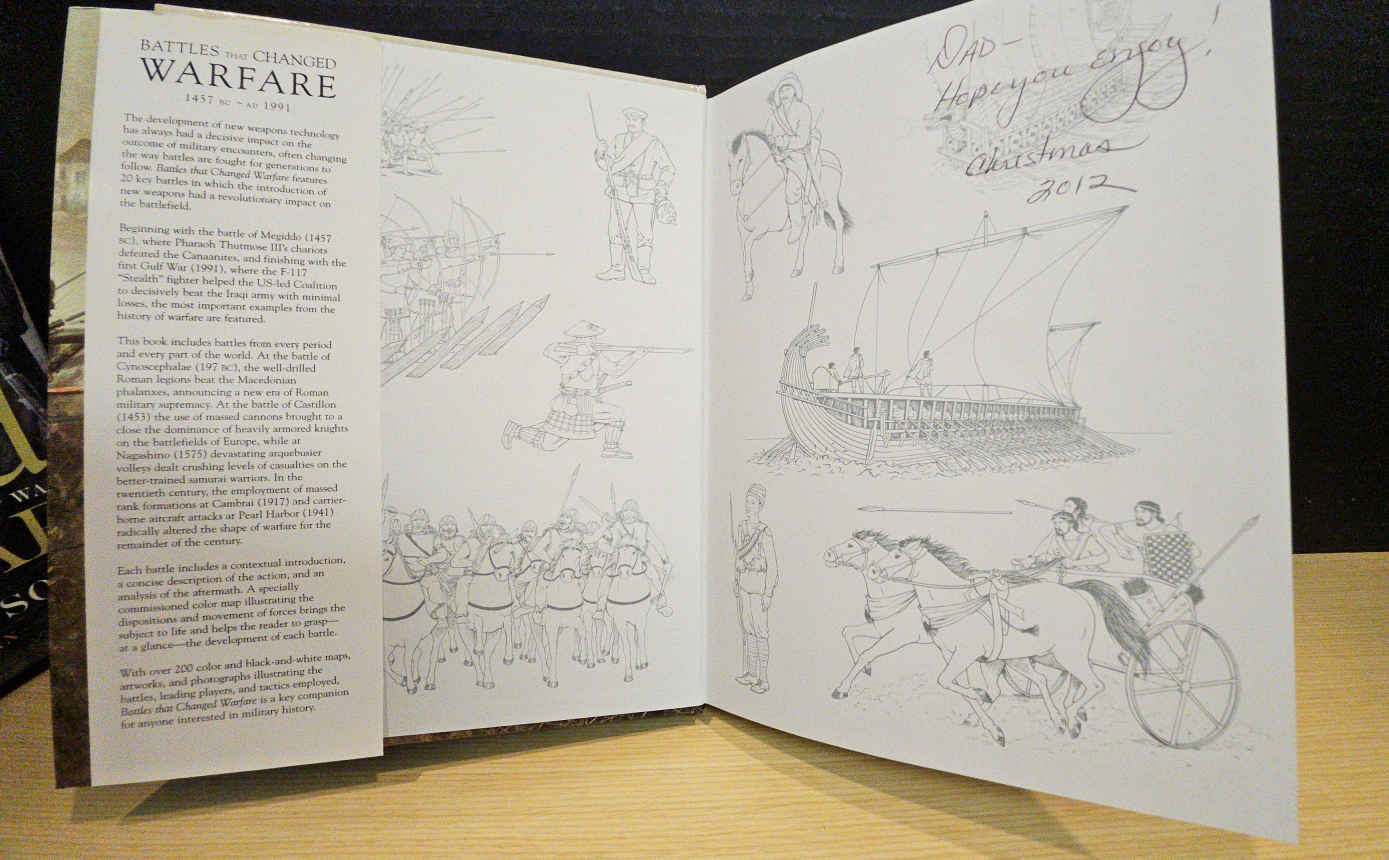 BATTLES THAT CHANGED
WARFARE
1457 BC ~ AD 1991
The development of new weapons technology
has always had a decisive impact on the
outcome of military encounters, often changing
the way battles are fought for generations to
follow. Battles that Changed Warfare features
20 key battles in which the introduction of
new weapons had a revolutionary impact on
the battlefield.
Beginning with the battle of Megiddo (1457
BC), where Pharaoh Thutmose III's chariots
defeated the Canaanites, and finishing with the
first Gulf War (1991), where the F-117
"Stealth" fighter helped the US-led Coalition
to decisively beat the Iraqi army with minimal
losses, the most important examples from the
history of warfare are featured.
This book includes battles from every period
and every part of the world. At the battle of
Cynoscephalae (197 BC), the well-drilled
Roman legions beat the Macedonian
phalanxes, announcing a new era of Roman
military supremacy. At the battle of Castillon
(1453) the use of massed cannons brought to a
close the dominance of heavily armored knights
on the battlefields of Europe, while at
Nagashino (1575) devastating arquebusier
volleys dealt crushing levels of casualties on the
better-trained samurai warriors. In the
twentieth century, the employment of massed
rank formations at Cambrai (1917) and carrier-
borne aircraft attacks at Pearl Harbor (1941)
radically altered the shape of warfare for the
remainder of the century.
Each battle includes a contextual introduction,
a concise description of the action, and an
analysis of the aftermath. A specially
commissioned color map illustrating the
dispositions and movement of forces brings the
subject to life and helps the reader to grasp—
at a glance—the development of each battle.
With over 200 color and black-and-white maps,
artworks, and photographs illustrating the
battles, leading players, and tactics employed,
Battles that Changed Warfare is a key companion
for anyone interested in military history.
DAD-
Hope you enjoy!
Christmas
2012